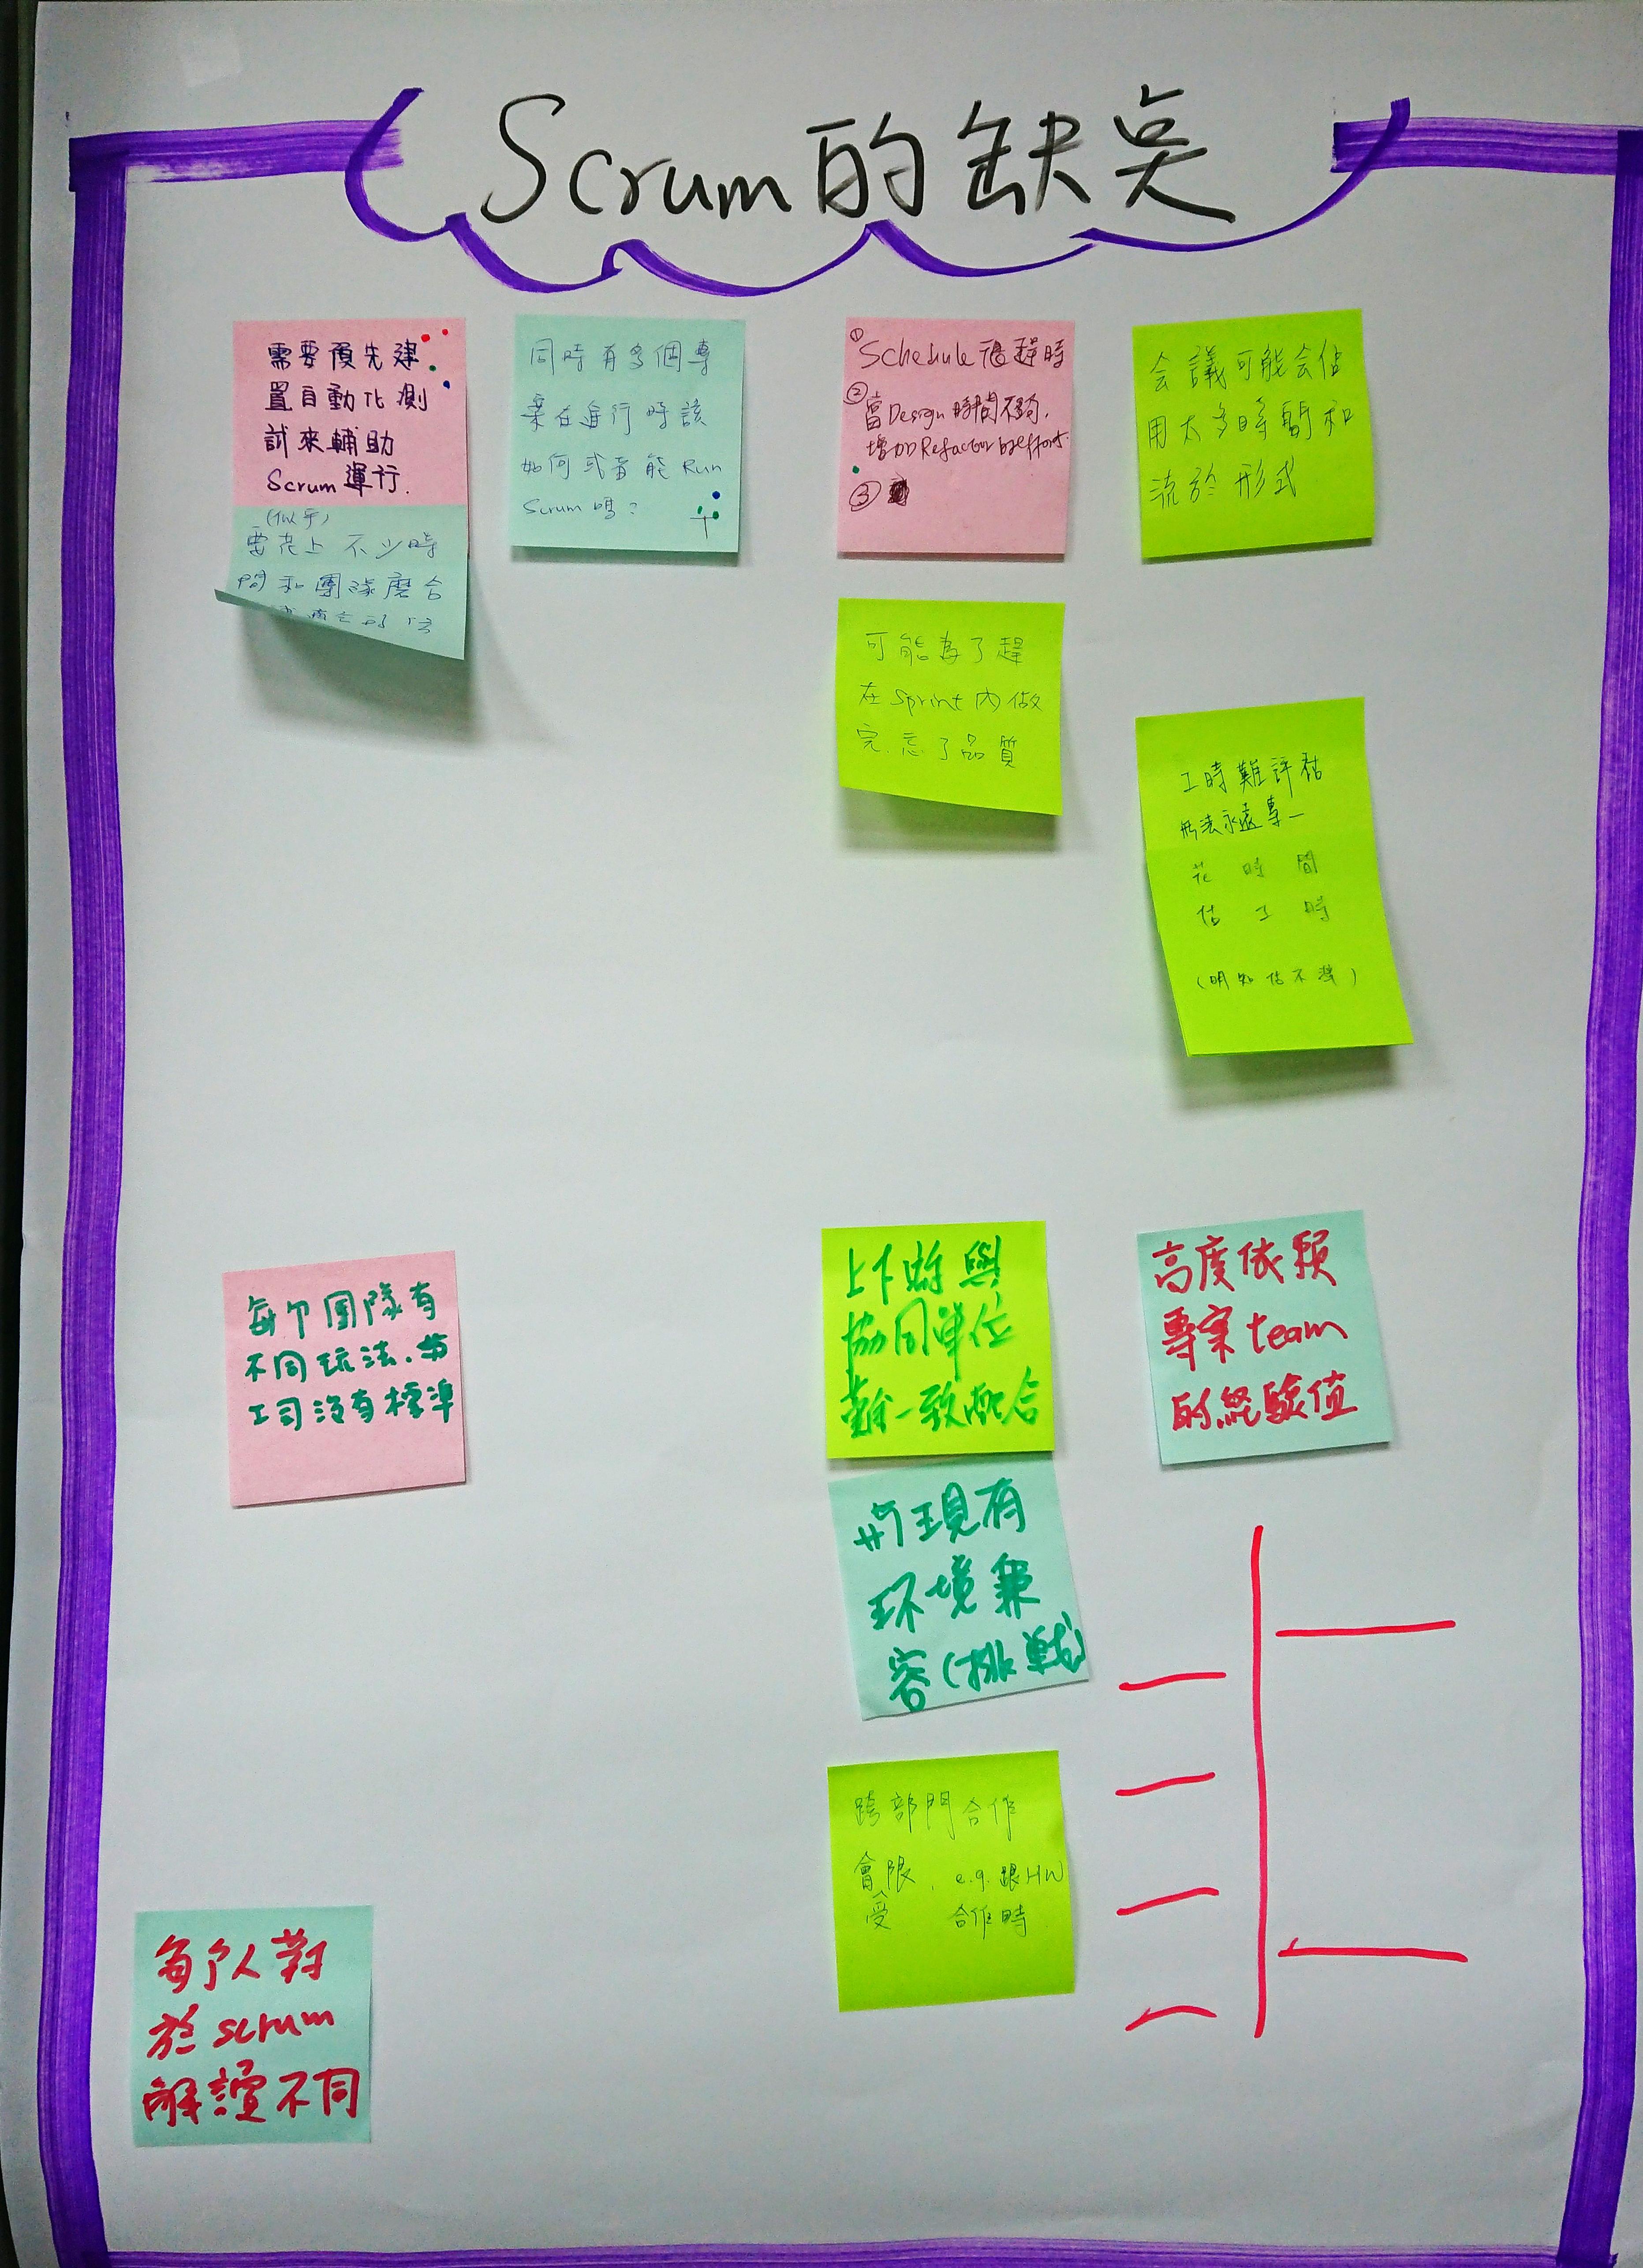 Scrum的缺点
需要預先建
置自動化測
試來輔助
Scrum運行.
(似乎)
要花上 不少時
間和團隊磨合
同時有多個專
案在進行時該
如何或者能Run
Scrum嗎?
① Schedule很趕時
② 當Design時間不夠,
增加Refactor的effort.
③
会議可能会佔
用太多時間和
流於形式
可能為了趕
在Sprint內做
完,忘了品質
工時難評估
無法永遠專一
花時間
估工時
(明知估不準)
每个團隊有
不同玩法.
司沒有標準
上下游與
協同單位
難一致配合
與現有
环境兼
容(挑戰)
高度依賴
專案team
的經驗值
跨部門合作
會受限. e.g.跟HW
合作時
每个人對
於scrum
解讀不同